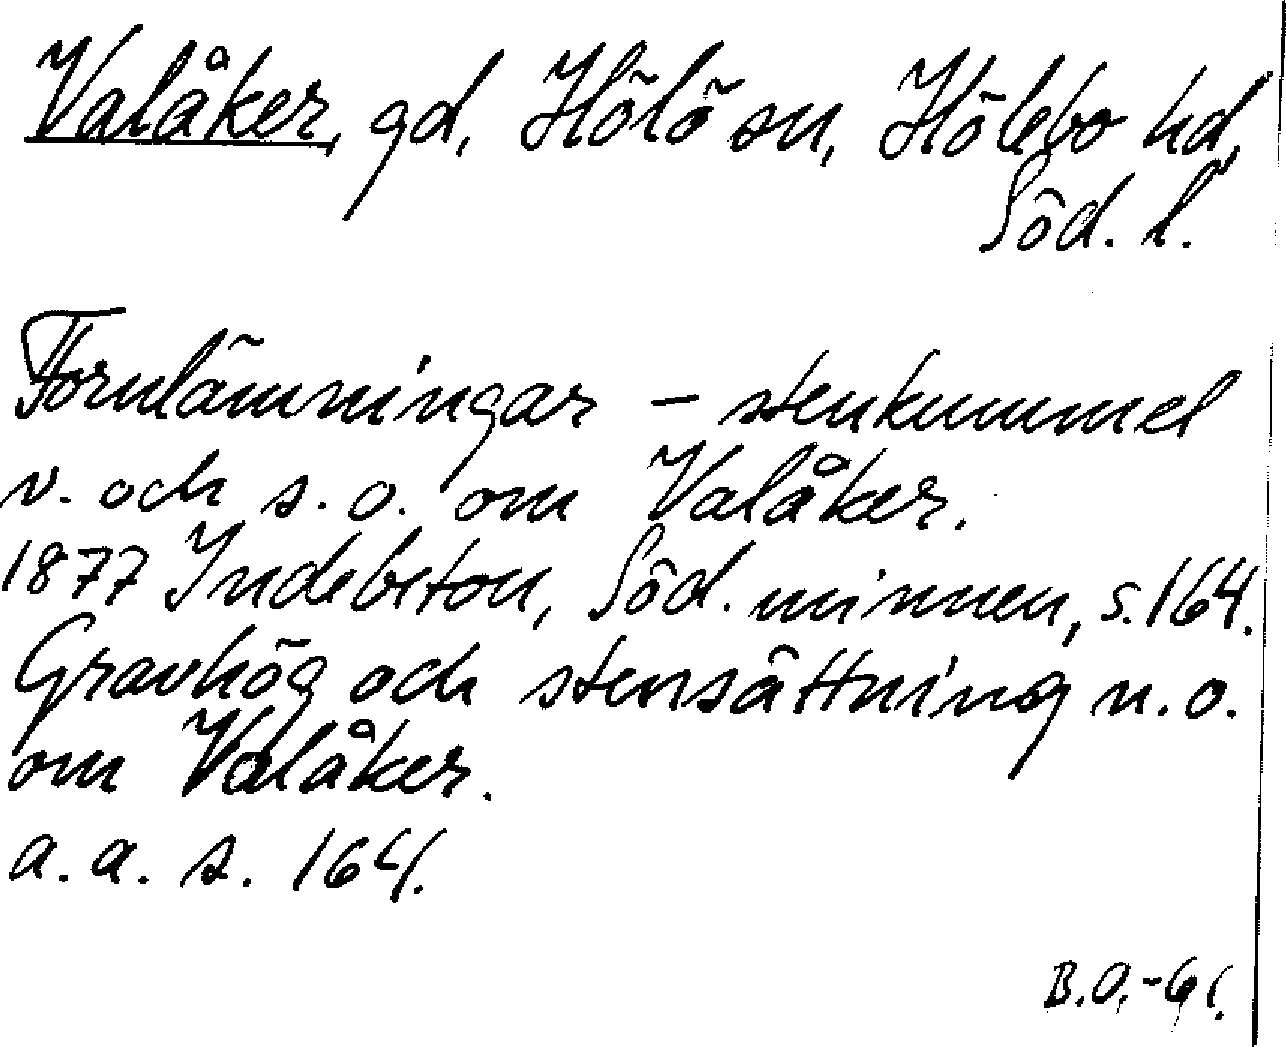 Valåker, gd, Hölö sn, Hölebo hd,
Söd. l.
Fornlämningar – stenkummel
v. och s.o. om Valåker.
1877 Indebetou, Söd. minnen, s. 164.
Gravhög och stensättning n.o.
om Valåker.
a. a. s. 164.
B.O.-61.